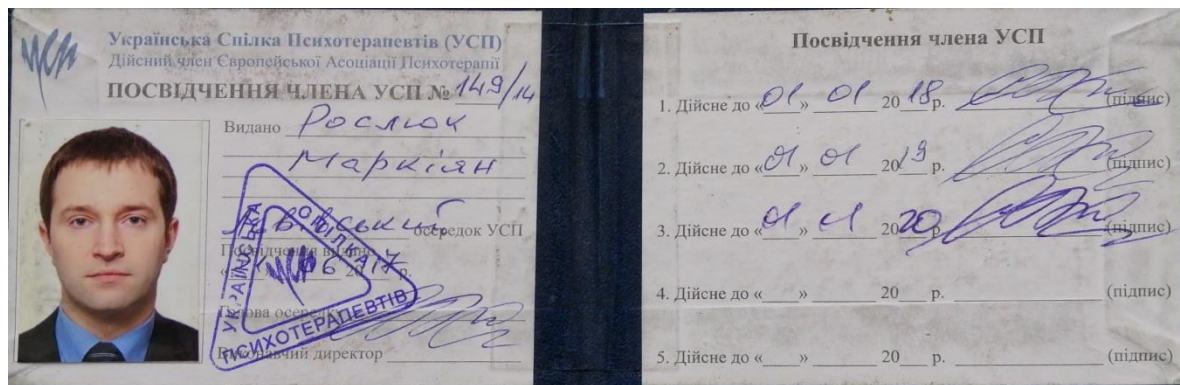 УСП
Українська Спілка Психотерапевтів (УСП)
Дійсний член Європейської Асоціації Психотерапії
ПОСВІДЧЕННЯ ЧЛЕНА УСП № 149/14
Видано Рослюк
Маркіян
Львівський осередок УСП
Посвідчення видано
06 2017 р.
Голова осередку
Виконавчий директор
УКРАЇНСЬКА СПІЛКА ПСИХОТЕРАПЕВТІВ
УСП
Посвідчення члена УСП
1. Дійсне до «01» 01 2018 р. (підпис)
2. Дійсне до «01» 01 2019 р. (підпис)
3. Дійсне до «01» 01 2020 р. (підпис)
4. Дійсне до «___» ____ 20__ р. ____ (підпис)
5. Дійсне до «___» ____ 20__ р. ____ (підпис)